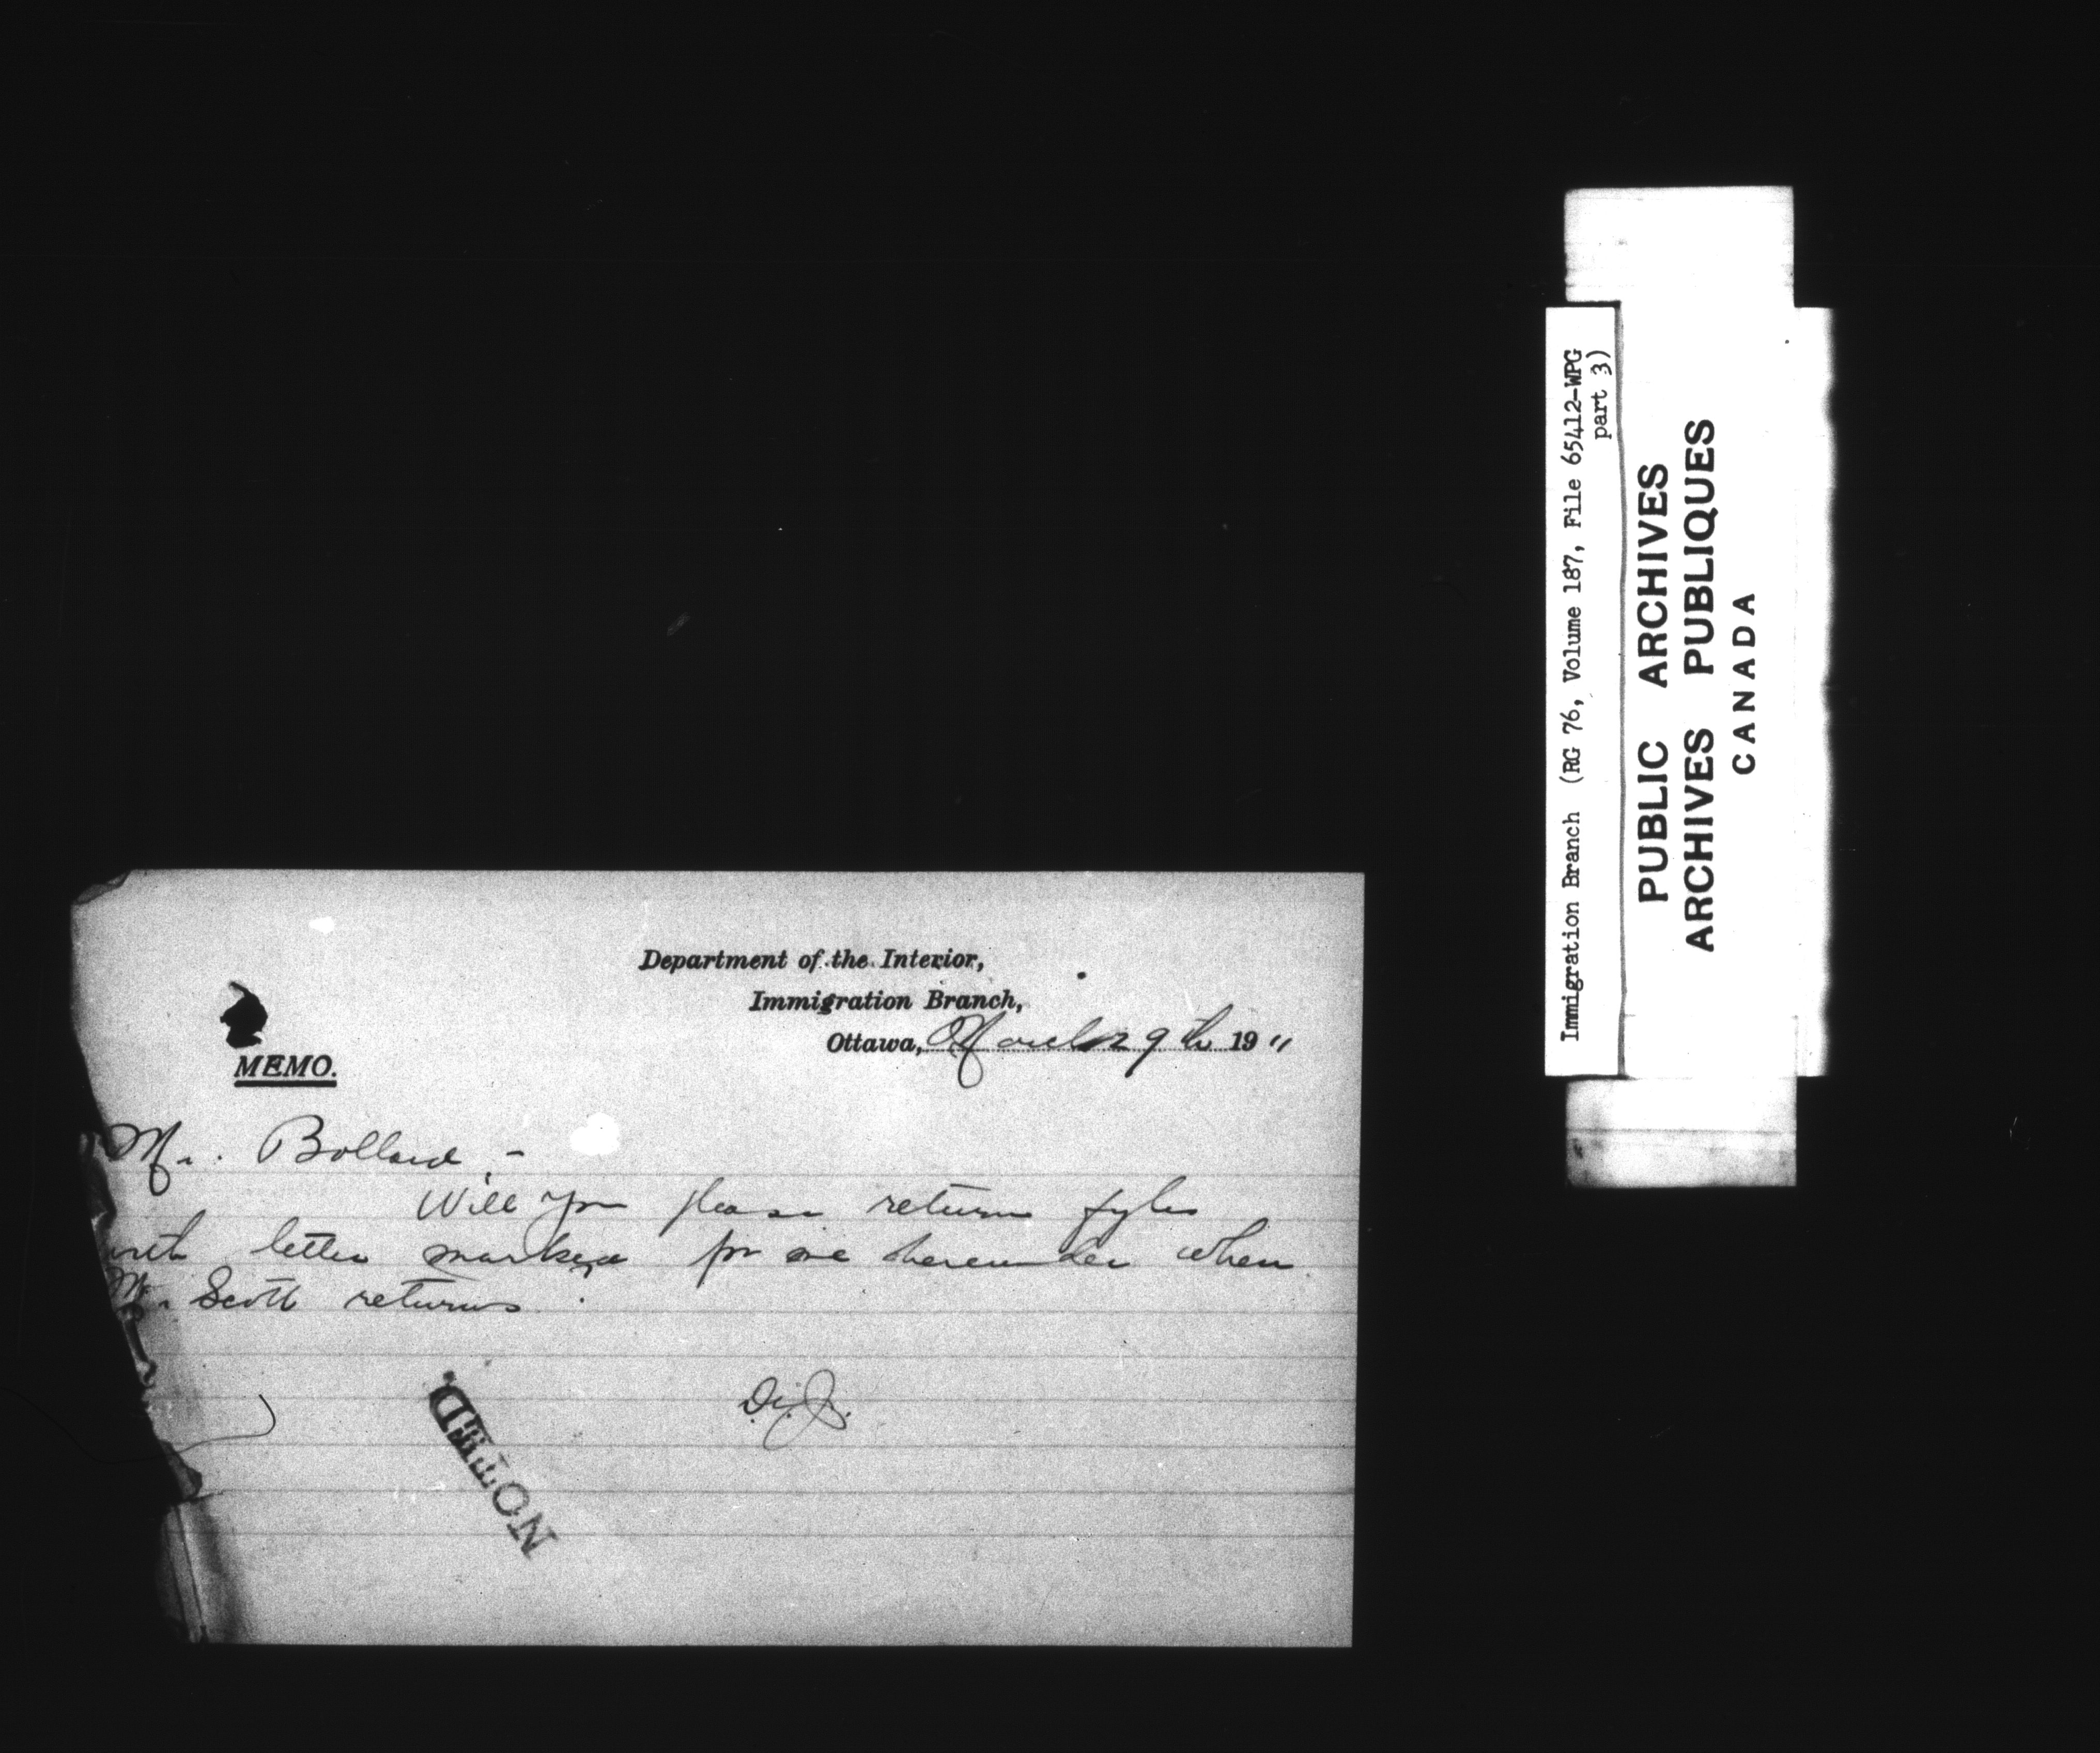 Department of the Interior,
Immigration Branch,
Ottawa, March 29th 1911
MEMO.
Mr. Bollard,-
Will you please return fyles
with letter marked for me hereunder when
Mr. Scott returns.
NOTED.
Immigration Branch (RG 76, Volume 187, File 65412-WPG
part 3)
PUBLIC ARCHIVES
ARCHIVES PUBLIQUES
CANADA